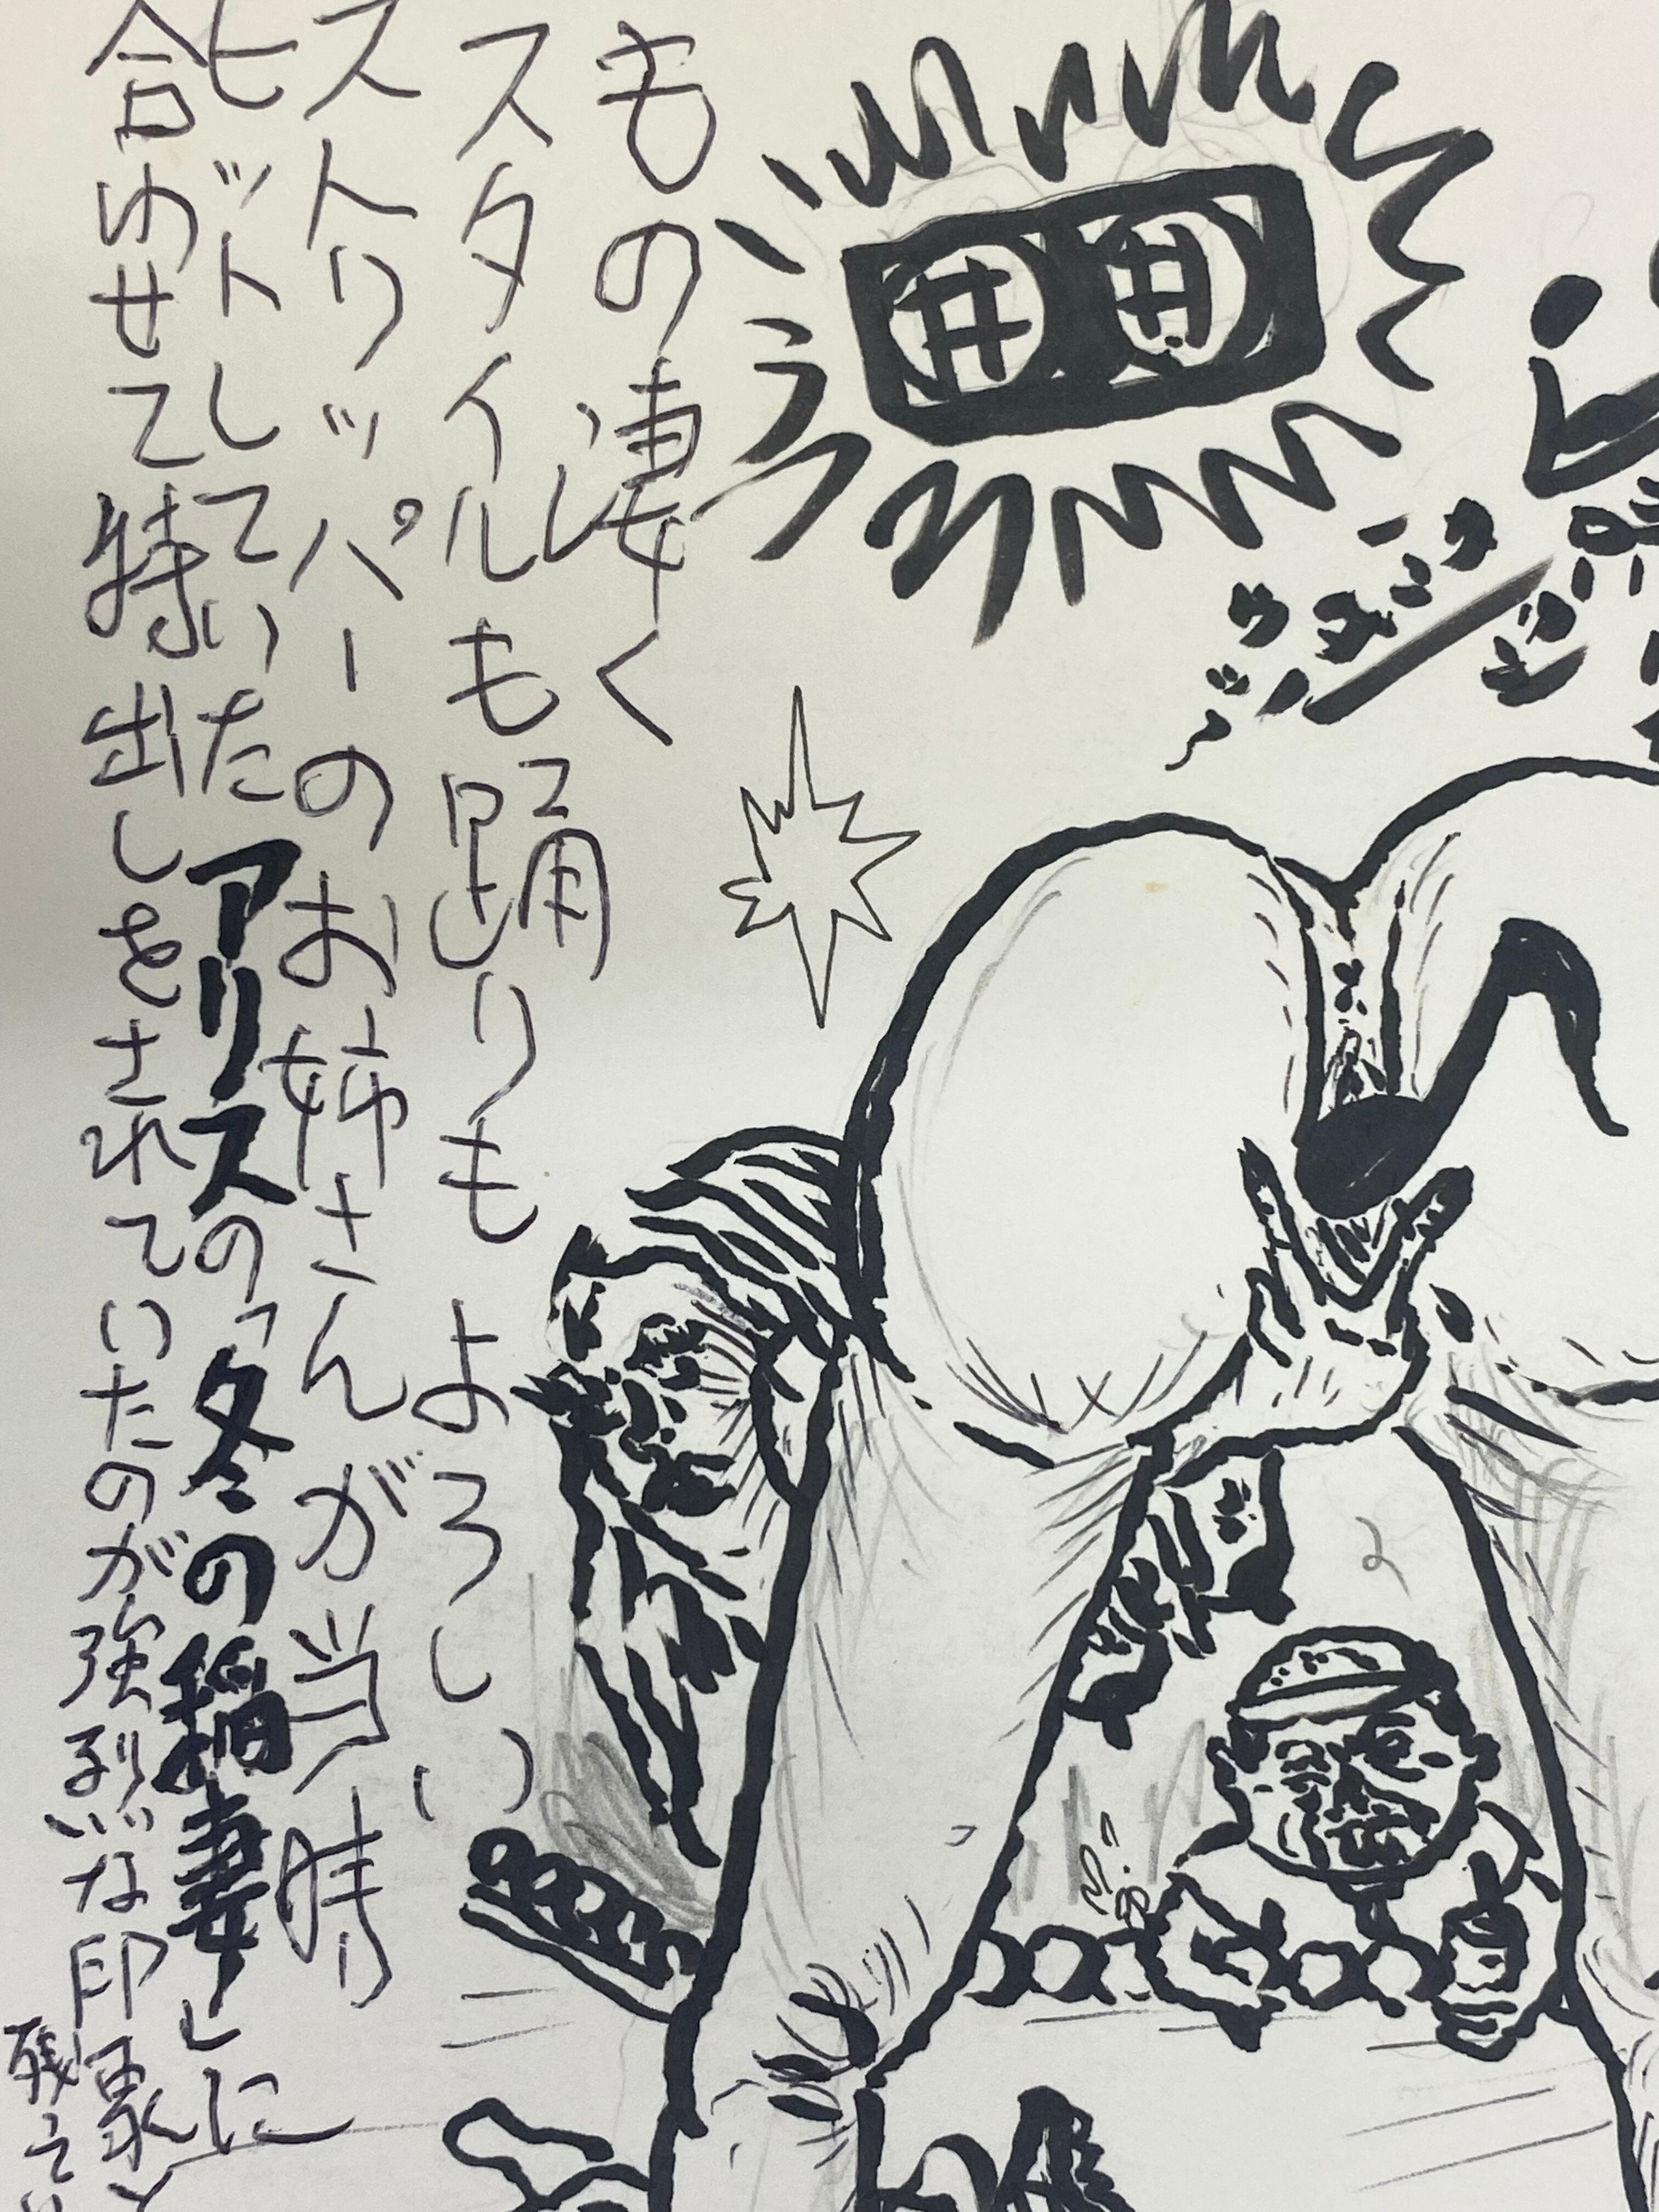 もの凄く
スタイルも踊りもよろしい
ストリッパーのお姉さんが当時
ヒットしていたアリスの「冬の稲妻」に
合ゆせて特い出しをされていたのが強烈な印象と
残って